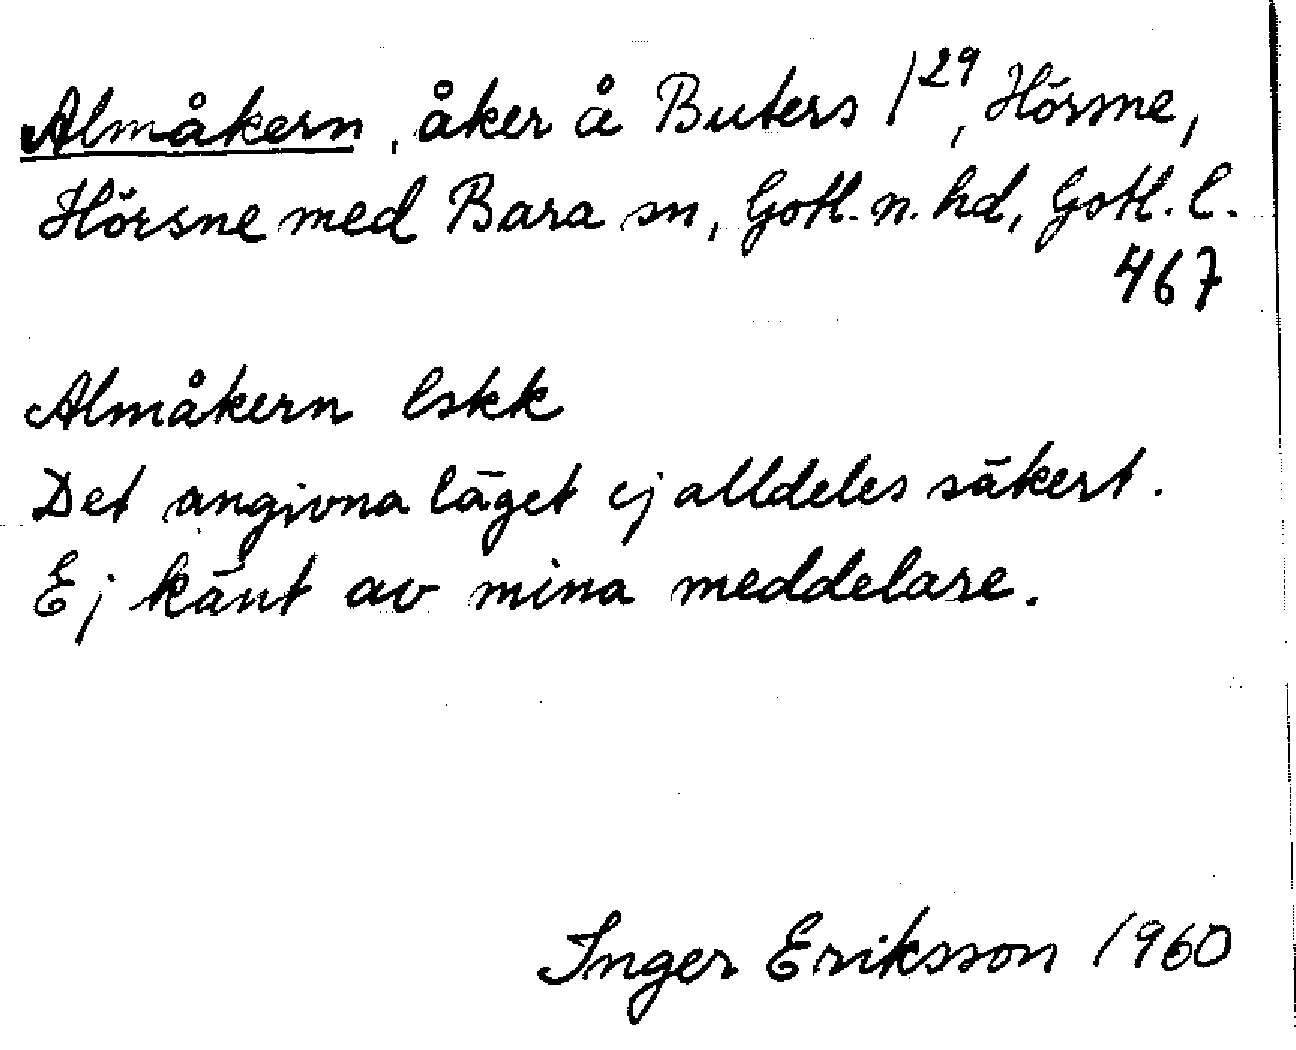 Almåkern, åker å Buters 1²⁹, Hörsne,
Hörsne med Bara sn, Gotl. n. hd, Gotl. l.
467
Almåkern lskk
Det angivna läget ej alldeles säkert.
Ej känt av mina meddelare.
Inger Eriksson 1960